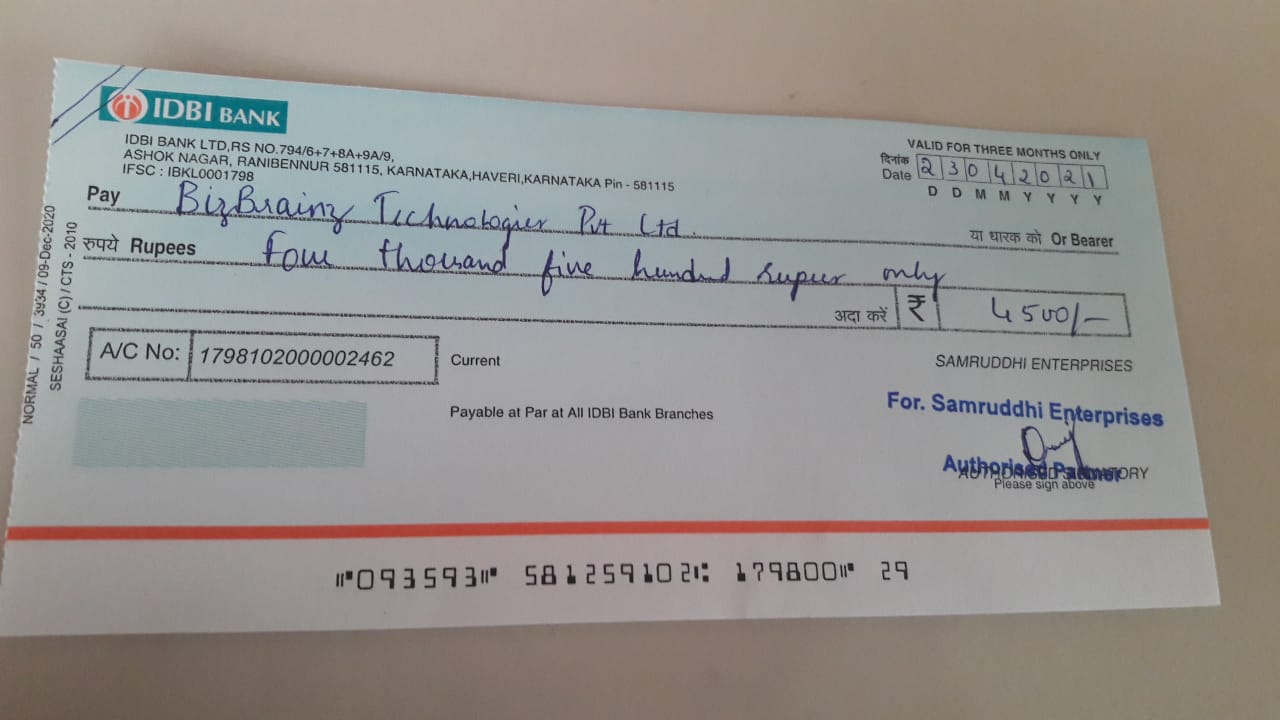 IDBI BANK
IDBI BANK LTD,RS NO.794/6+7+8A+9A/9,
ASHOK NAGAR, RANIBENNUR 581115, KARNATAKA,HAVERI,KARNATAKA Pin - 581115
IFSC : IBKL0001798
VALID FOR THREE MONTHS ONLY
दिनांक
Date 23042021
D D M M Y Y Y Y
Pay BizBrainz Technologies Pvt Ltd.
या धारक को Or Bearer
रुपये Rupees four thousand five hundred rupees only
अदा करें ₹ 4500/-
A/C No: 1798102000002462 Current
SAMRUDDHI ENTERPRISES
Payable at Par at All IDBI Bank Branches
For. Samruddhi Enterprises
Authorised Partner
AUTHORISED SIGNATORY
Please sign above
NORMAL / 50 / 3934 / 09-Dec-2020
SESHAASAI (C) / CTS - 2010
⑈093593⑈ 581259102⑆ 179800⑈ 29